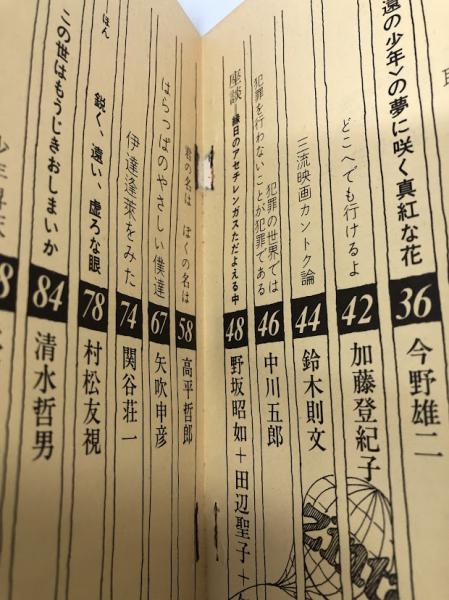 遠の少年〉の夢に咲く真紅な花 36 今野雄二
どこへでも行けるよ 42 加藤登紀子
三流映画カントク論 44 鈴木則文
犯罪の世界では
犯罪を行わないことが犯罪である 46 中川五郎
座談—縁日のアセチレンガスただよえる中 48 野坂昭如+田辺聖子+
君の名は ぼくの名は 58 高平哲郎
はらっぱのやさしい僕達 67 矢吹申彦
伊達蓬莱をみた 74 関谷荘一
鋭く、遠い、虚ろな眼 78 村松友視
ほん
この世はもうじきおしまいか 84 清水哲男
8